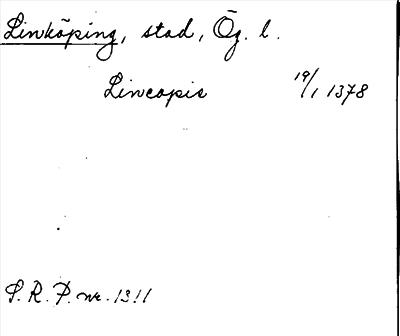 Linköping, stad, Ög. l.
Lincopis 19/1 1378
S. R. P. nr. 1311